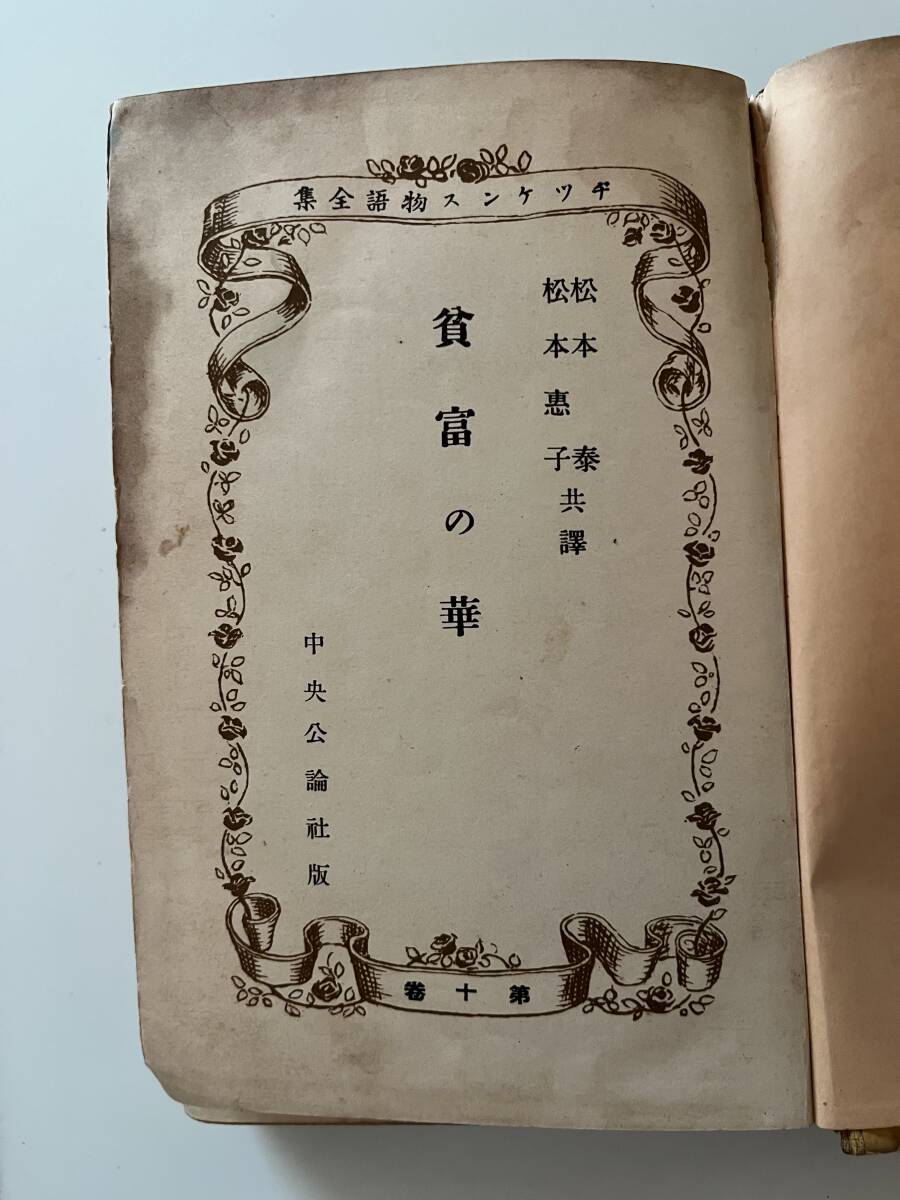 ヂツケンス物語全集
松本 泰
松本惠子
共譯
貧富の華
中央公論社版
第十卷